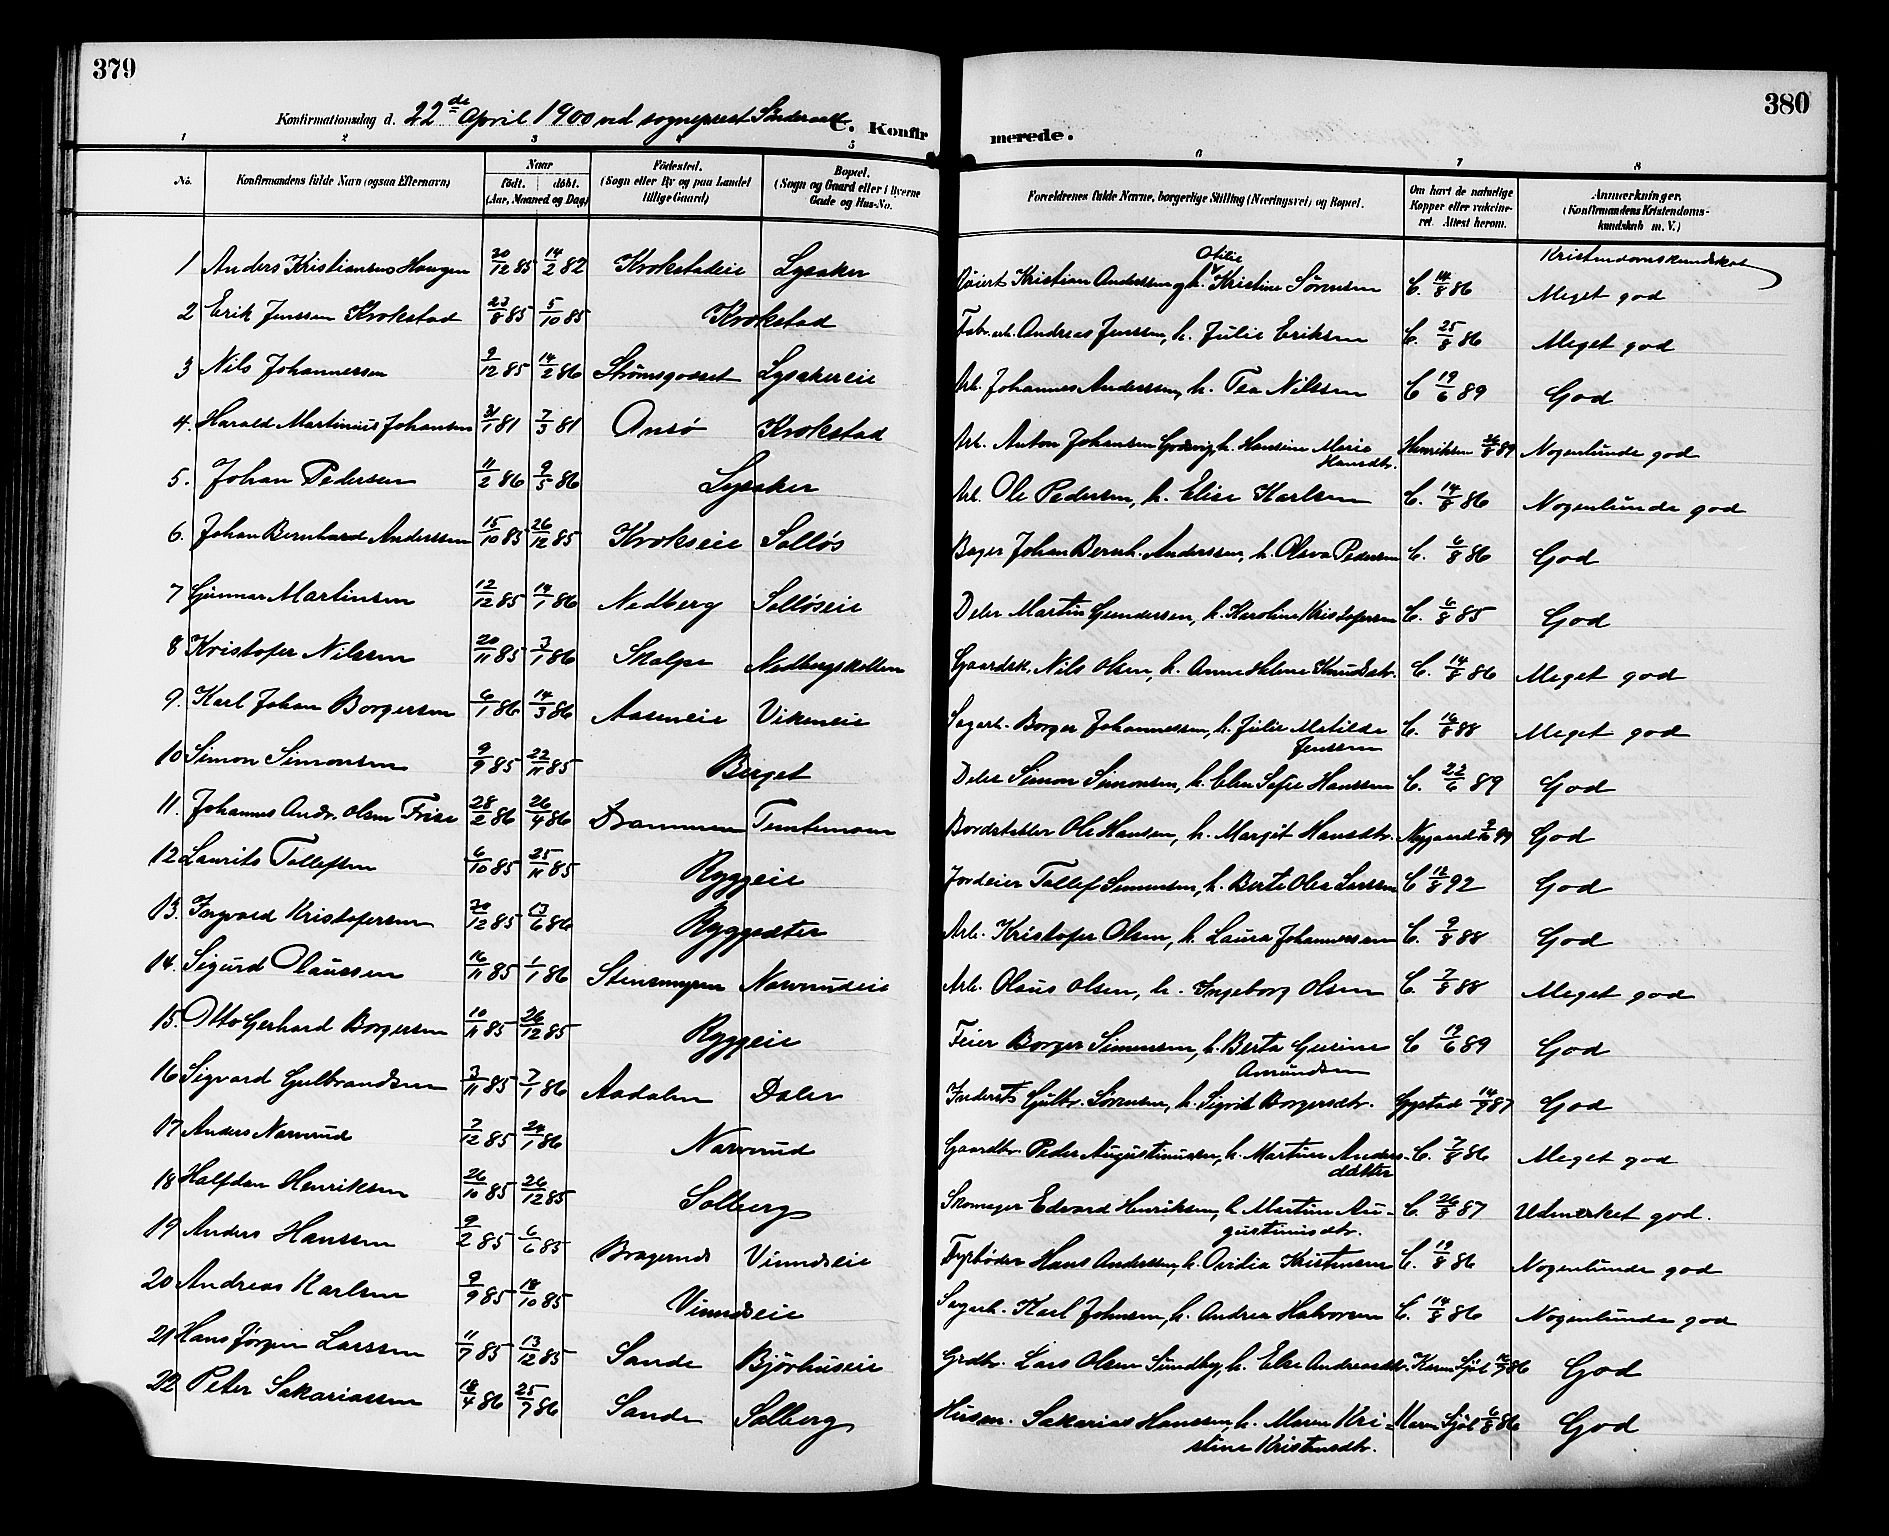 379
380
Konfirmationsdag d. 22de April 1900 ved sogneprest
C. Konfirmerede.
1 2 3 4 5 6 7 8
No. Konfirmandens fulde Navn (ogsaa Efternavn) Naar født. døbt. (Aar, Maaned og Dag) Födested. (Sogn eller By og paa Landet tillige Gaard) Bopæl. (Sogn og Gaard eller i Byerne Gade og Hus-No. Forældrenes fulde Navne, borgerlige Stilling (Næringsvei) og Bopæl. Om havt de naturlige Kopper eller vakcineret. Attest herom. Anmærkninger. (Konfirmandens Kristendomskundskab m. V.)
Kristendomskundskab
1 Anders Kristiansen Haugen 20/12 85 14/2 82 Krokstadeie Lysaker Kristian Anderssen og h. Otilie Kristine Sørensen C. 14/8 86 Meget god
2 Erik Jenssen Krokstad 23/8 85 5/10 85 Krokstad Fabr.arb. Andreas Jenssen, h. Julie Eriksen C. 25/8 86 Meget god
3 Nils Johannessen 9/12 85 14/2 86 Strømsgodset Lysakereie Arb. Johannes Anderssen, h. Tea Nilssen C 19/6 89 God
4. Harald Martinius Johansen 31/1 81 7/3 81 Onsø Krokstad Arb. Anton Johansen h. Hansine Marie Hansdtr. Henriksen 26/8 89 Nogenlunde god
5. Johan Pedersen 11/2 86 9/5 86 Lysaker Arb. Ole Pedersen, h. Elise Karlsen C. 14/8 86 Nogenlunde god
6. Johan Bernhard Anderssen 15/10 85 26/12 85 Krokseie Solløs Bager Johan Bernh. Anderssen, h. Olava Pedersen C. 6/8 86 God
7 Gunnar Martinsen 12/12 85 14/1 86 Nedberg Solløseie Deler Martin Gundersen, h. Karoline Kristofersen C. 6/8 85 God
8 Kristofer Nilssen 20/11 85 3/1 86 Skalpe Nedbergskollen Gaardsk. Nils Olsen, h. Anne Helene Knudsdtr. C. 14/8 86 Meget god
9. Karl Johan Borgersen 6/1 86 14/3 86 Aaseneie Vikeneie Sagarb. Borger Johannessen, h. Julie Matilde Jenssen C. 16/8 88 Meget god
10 Simon Simonsen 9/9 85 22/11 85 Berget Deler Simon Simonsen, h. Elen Sofie Hanssen C. 22/6 89 God
11. Johannes Andr. Olsen Frise 28/2 86 26/4 86 Drammen Temtemoen Bordstabler Ole Hansen, h. Margit Hansdtr. Nygaard God
12 Laurits Tollefsen 6/10 85 25/11 85 Ryggeie Jordeier Tollef Simensen, h. Berte Olea Larssen C 12/8 92 God
13. Ingvald Kristofersen 30/12 85 13/6 86 Ryggsæter Arb. Kristofer Olsen, h. Laura Johannessen C. 9/8 88 God
14. Sigurd Olaussen 16/11 85 1/1 86 Stensmyren Narverudeie Arb. Olaus Olsen, h. Ingeborg Olsen C. 7/8 88 Meget god
15. Otto Gerhard Borgersen 10/11 85 26/12 85 Ryggeie Feier Borger Simensen, h. Berta Gusine Amundsen C 19/6 89 God
16 Sigvard Gulbrandsen 3/11 85 7/1 86 Aadalen Dalen Inderst Gulbr. Sørensen, h. Sigrid Borgersdtr. 14/9 87 God
17 Anders Narverud 7/12 85 24/1 86 Narverud Gaardbr. Peder Augustinussen, h. Martine Andersdatter C. 7/8 86 Meget god
18 Halfdan Henriksen 26/10 85 26/12 85 Solberg Skomager Edvard Henriksen, h. Martine Augustinusdtr. C. 26/8 87 Udmerket god.
19 Anders Hanssen 9/2 85 6/6 85 Bragernes Vinnæseie Fyrbøder Hans Anderssen, h. Ovidia Kristensen C. 19/8 86 Nogenlunde god
20 Andreas Karlsen 9/9 85 18/10 85 Vinnæseie Sagarb. Karl Johnsen, h. Andrea Halvorsen C. 14/8 86 Nogenlunde god
21 Hans Jørgen Larssen 11/7 85 13/12 85 Sande Bjørhuseie Grdbr. Lars Olsen Sundby, h. Else Andreasdtr. Karen God
22 Peter Sakariassen 18/4 86 25/7 86 Sande Solberg Husm. Sakarias Hanssen, h. Maren Kristine Kristensdtr. Maren 6/8 86 God